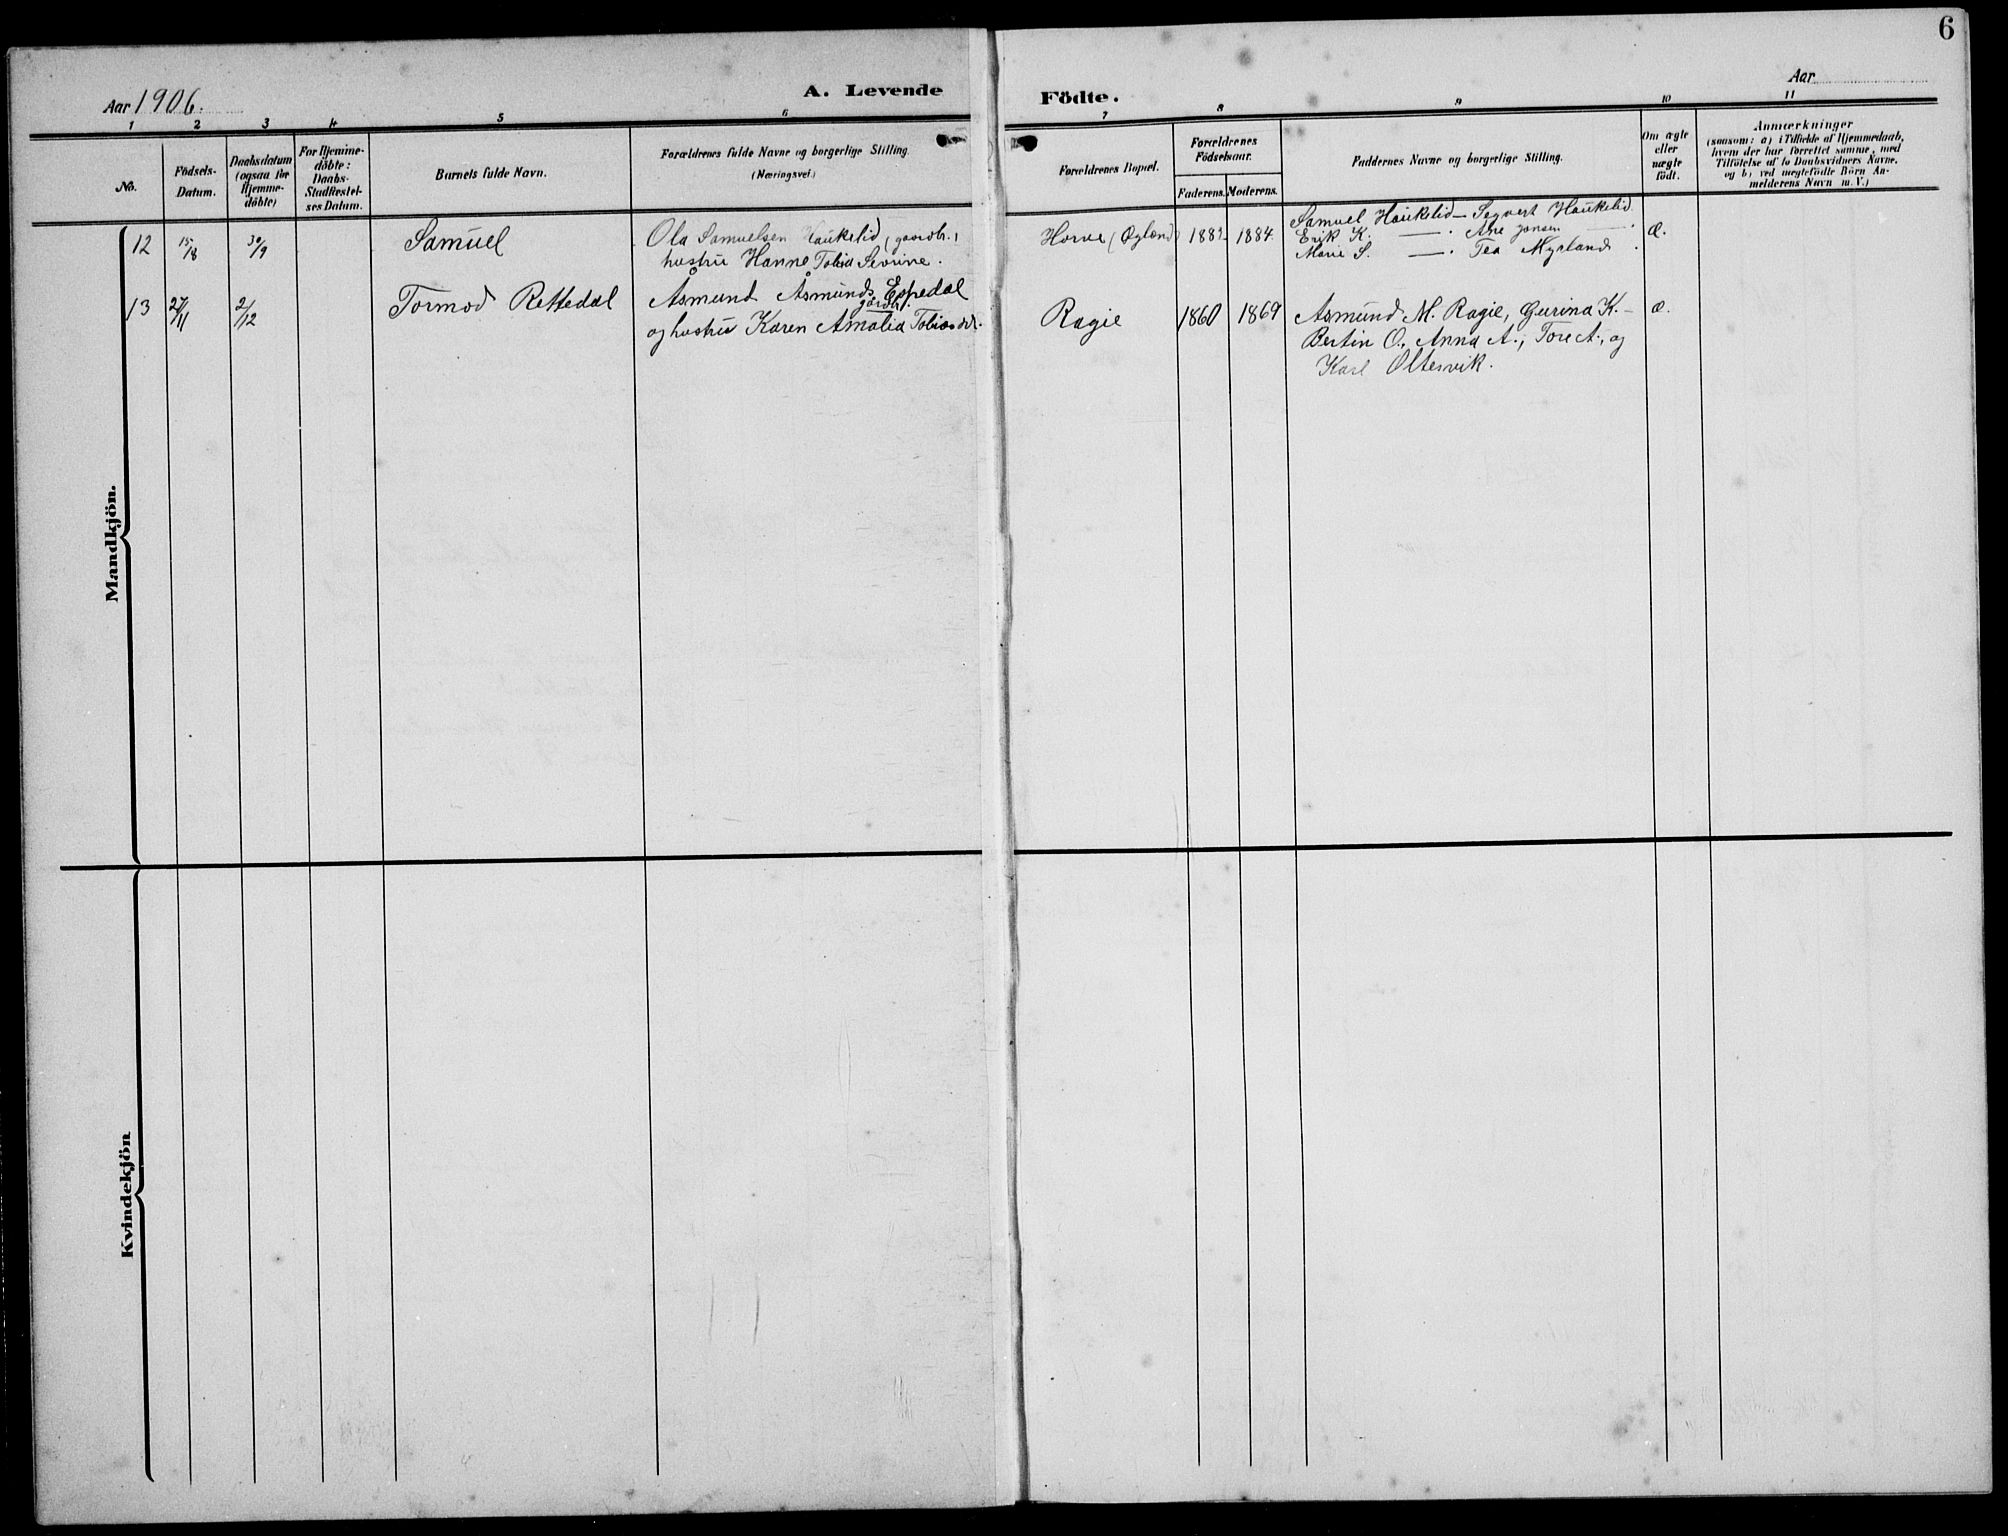 6
Aar 1906.
A. Levende
Födte.
Aar
1 2 3 4 5 6 7 8 9 10 11
No.
Födsels-
Datum.
Daabsdatum
(ogsaa for
Hjemme-
döbte)
For Hjemme-
döbte:
Daabs-
Stadfæstel-
ses Datum.
Barnets fulde Navn.
Forældrenes fulde Navne og borgerlige Stilling
(Næringsvei.)
Forældrenes Bopæl.
Forældrenes
Födselsaar.
Faderens. Moderens.
Faddernes Navne og borgerlige Stilling.
Om ægte
eller
uægte
födt.
Anmærkninger
(saasom: a) i Tilfælde af Hjemmedaab,
hvem der har forrettet samme, med
Tilföielse af to Daabsvidners Navne,
og b) ved uægtefödte Börn An-
melderens Navn m. V.)
Mandkjön.
12 15/8 30/9 Samuel
Ola Samuelsen Haukelid (gaardb.)
hustru Hanne Tobia Severine.
Horve (Øgland) 1884.
Samuel Haukelid — Segvert Haukelid
Erik K. — . Ane Jonsen — .
Marie S. — . Tea Myrland .
æ.
13 27/11 2/12 Tormod Rettedal
Åsmund Åsmunds. Espedal
gårdbr.
og hustru Karen Amalia Tobiasdt.
Ragie 1860 1869
Asmund M. Ragie, Gurina K. –
Bertin O., Anna A., Tore A., og
Karl Oltesvik.
æ.
Kvindekjön